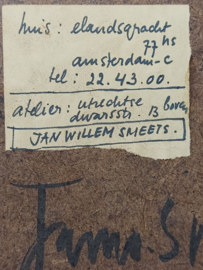 huis: elandsgracht
77 hs
amsterdam-c
tel: 22.43.00.
atelier: utrechtse boven
dwarsstr. 13
JAN WILLEM SMEETS.